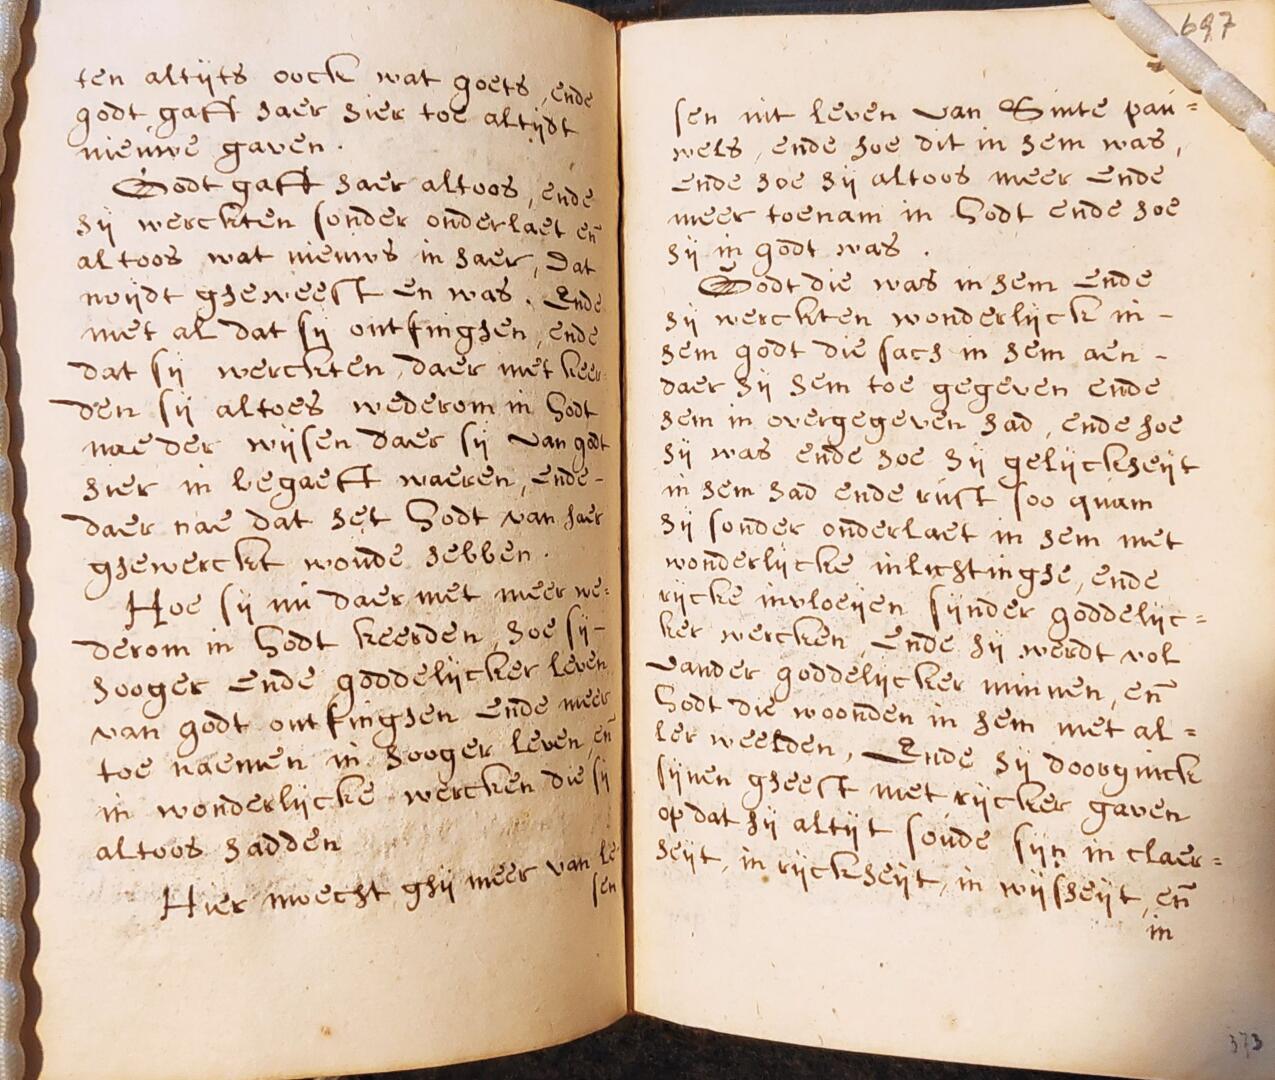 ten altijts oock wat goets, ende
godt gaff haer hier toe altijdt
nieuwe gaven.
Godt gaff haer altoos, ende
hij werckten sonder onderlaet en̄
altoos wat nieuws in haer, dat
noijdt gheweest en was. Ende
met al dat sij ontfinghen, ende
dat sij werckten, daer met keer-
den sij altoes wederom in Godt
nae der wijsen daer sij van godt
hier in begaeft waeren, ende-
daer nae dat het Godt van haer
ghewerckt woude hebben.
Hoe sij nu daer met meer we-
derom in Godt keerden, hoe sij-
hooger ende goddelijcker leven
van godt ontfinghen ende meer
toe naemen in hooger leven, en̄
in wonderlijcke wercken die sij
altoos hadden
Hier moecht ghij meer van le-
sen
697
sen uit leven van Sinte pau=
wels, ende hoe dit in hem was,
ende hoe hij altoos meer ende
meer toenam in Godt ende hoe
hij in godt was.
Godt die was in hem ende
hij werckten wonderlijck in-
hem godt die sach in hem aen-
daer hij hem toe gegeven ende
hem in overgegeven had, ende hoe
hij was ende hoe hij gelijckheijt
in hem had ende rust soo quam
hij sonder onderlaet in hem met
wonderlijcke inlichtinghe, ende
rijcke invloeijen sijnder goddelijc=
ker wercken, Ende hij werdt vol
vander goddelijcker minnen, en̄
Godt die woonden in hem met al=
ler weelden, Ende hij doorginck
sijnen gheest met rijcker gaven
op dat hij altijt soude sijn in claer=
heijt, in rijckheijt, in wijsheijt, en̄
in
373